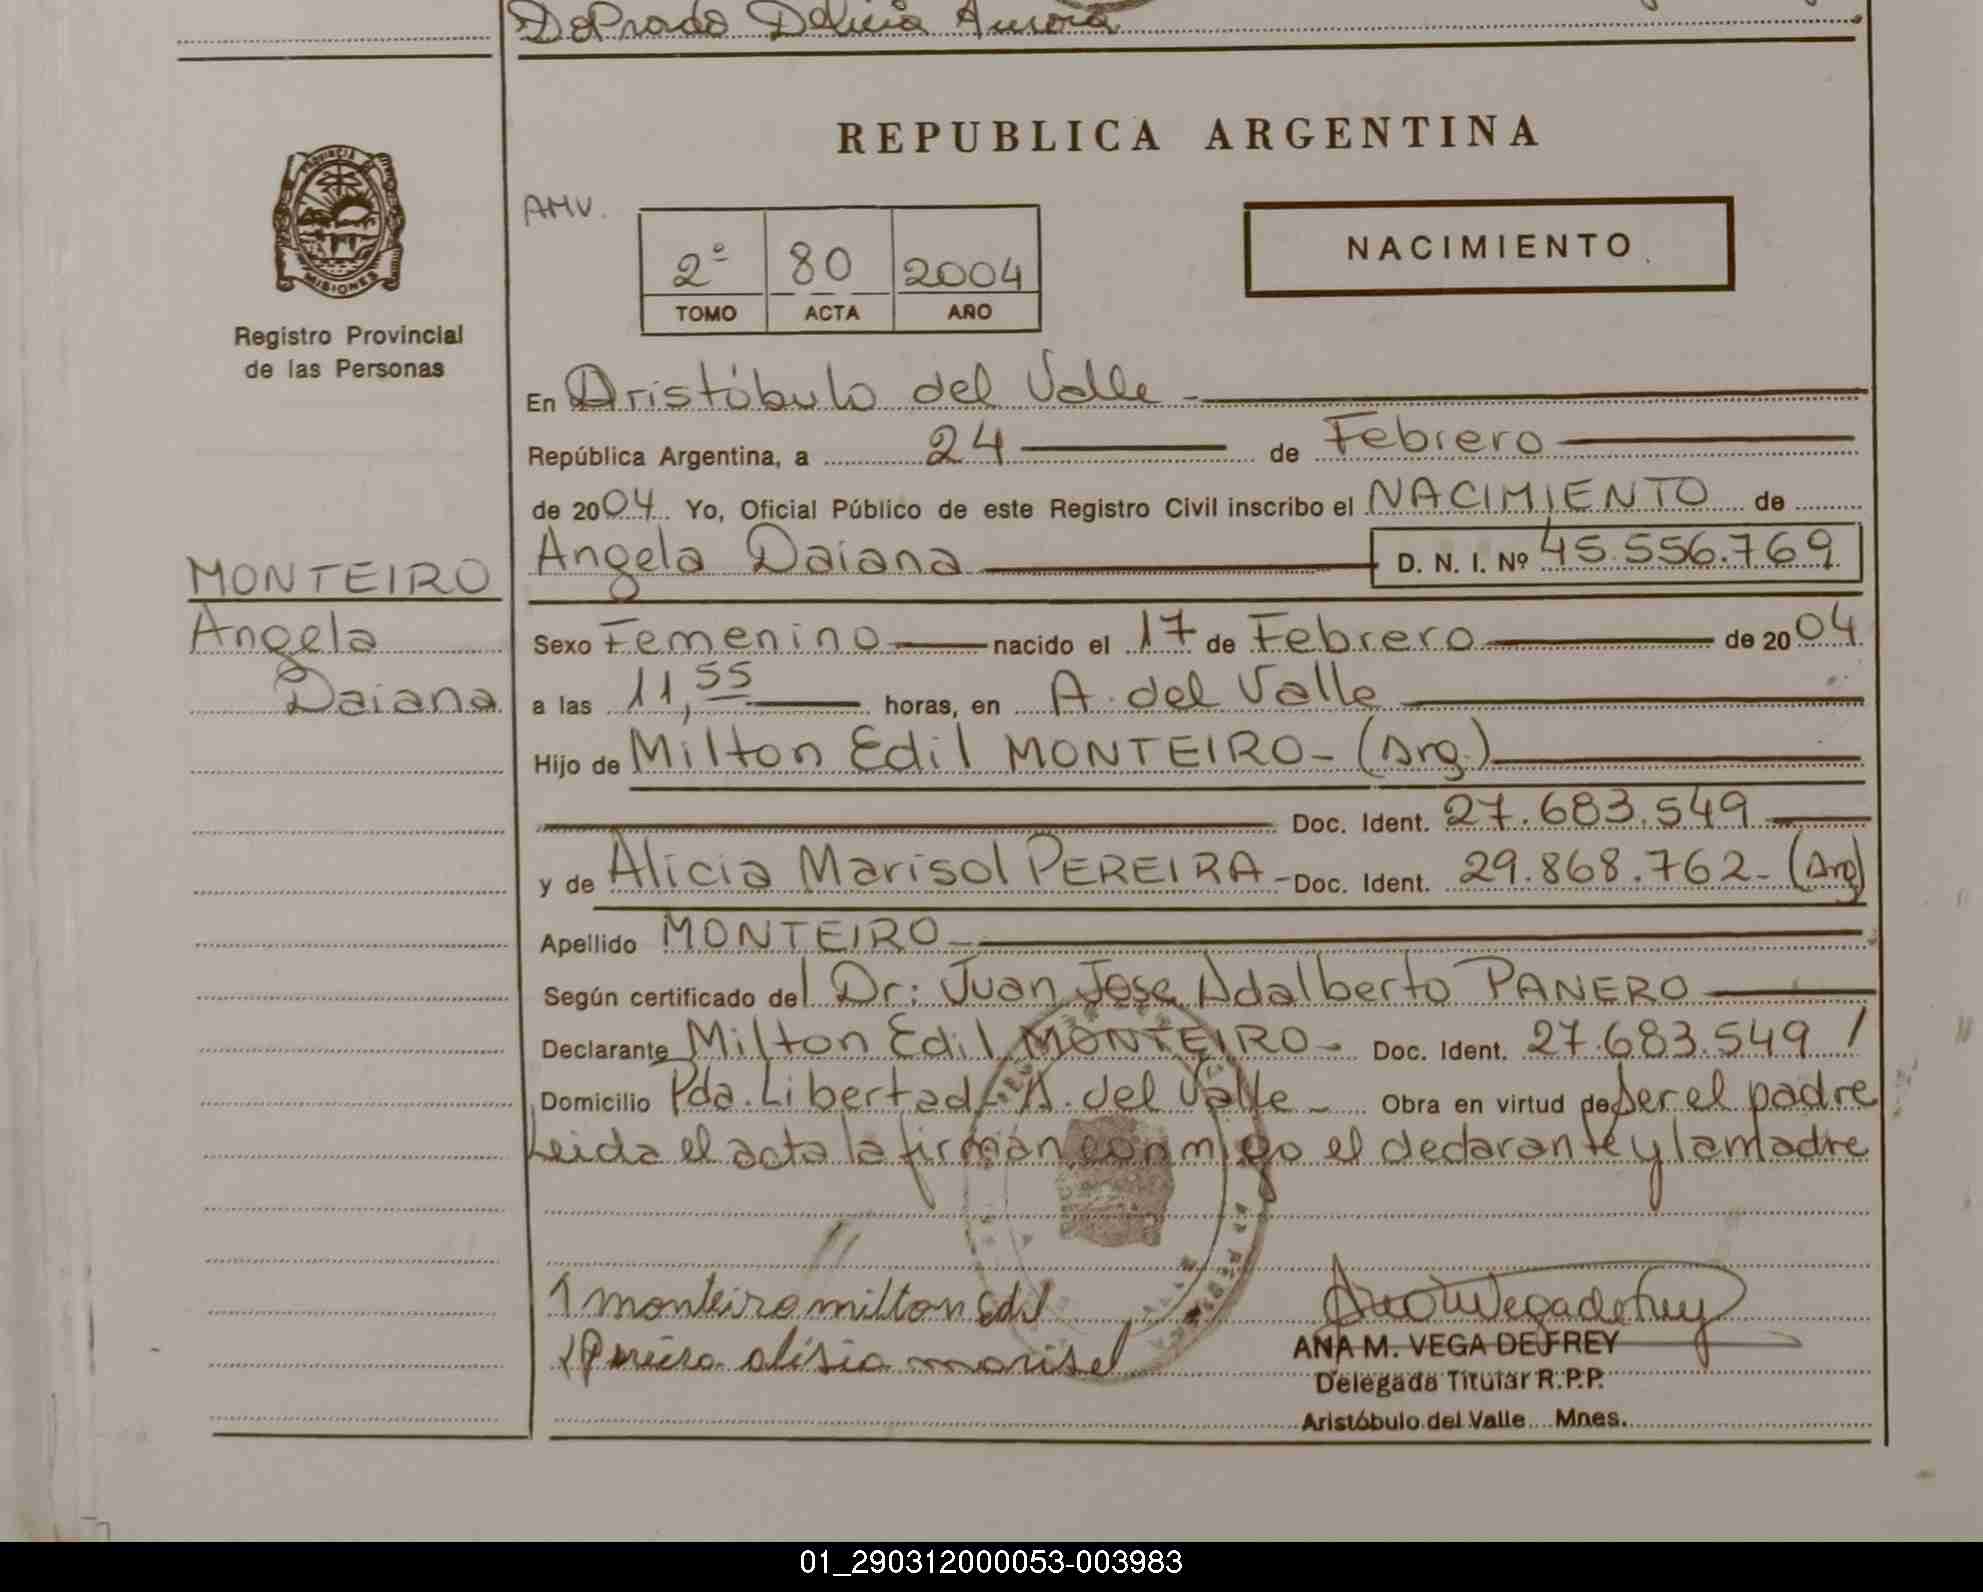 DoPrado Delicia Aurora
REPUBLICA ARGENTINA
PROVINCIA DE
MISIONES
Registro Provincial
de las Personas
AMV.
2º 80 2004
TOMO ACTA AÑO
NACIMIENTO
En Aristóbulo del Valle -
República Argentina, a 24 de Febrero
de 2004. Yo, Oficial Público de este Registro Civil inscribo el NACIMIENTO de
Angela Daiana D. N. I. Nº 45.556.769
MONTEIRO
Angela
Daiana
Sexo Femenino nacido el 17 de Febrero de 2004
a las 11,55 horas, en A. del Valle
Hijo de Milton Edil MONTEIRO - (Arg.)
Doc. Ident. 27.683.549
y de Alicia Marisol PEREIRA - Doc. Ident. 29.868.762 - (Arg)
Apellido MONTEIRO -
Según certificado del Dr: Juan Jose Adalberto PANERO
Declarante Milton Edil MONTEIRO - Doc. Ident. 27.683.549 /
Domicilio Pda. Libertad - A. del Valle - Obra en virtud de ser el padre
Leida el acta la firman conmigo el declarante y la madre
monteiro milton Edil
Pereira alisia marisel
ANA M. VEGA DE FREY
Delegada Titular R.P.P.
Aristóbulo del Valle Mnes.
01_290312000053-003983